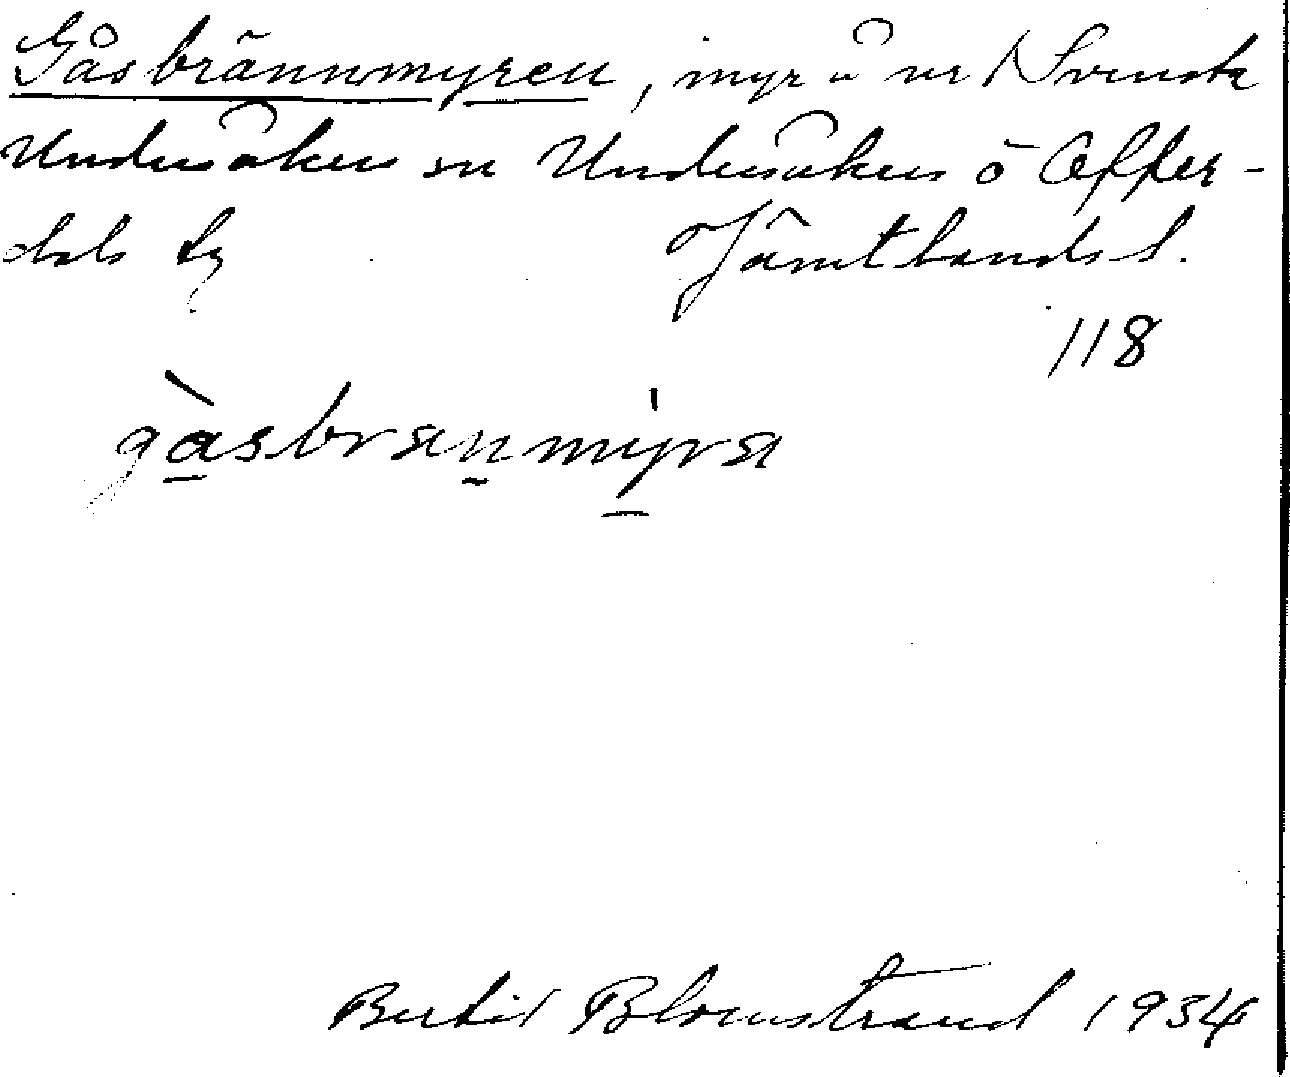 Gåsbrännmyren, myr å nr 1 Svensk
Undersåkers sn Undersåkers o Offer-
dals tg Jämtlands l.
118
gåsbrænmyræ
Bertil Blomstrand 1934